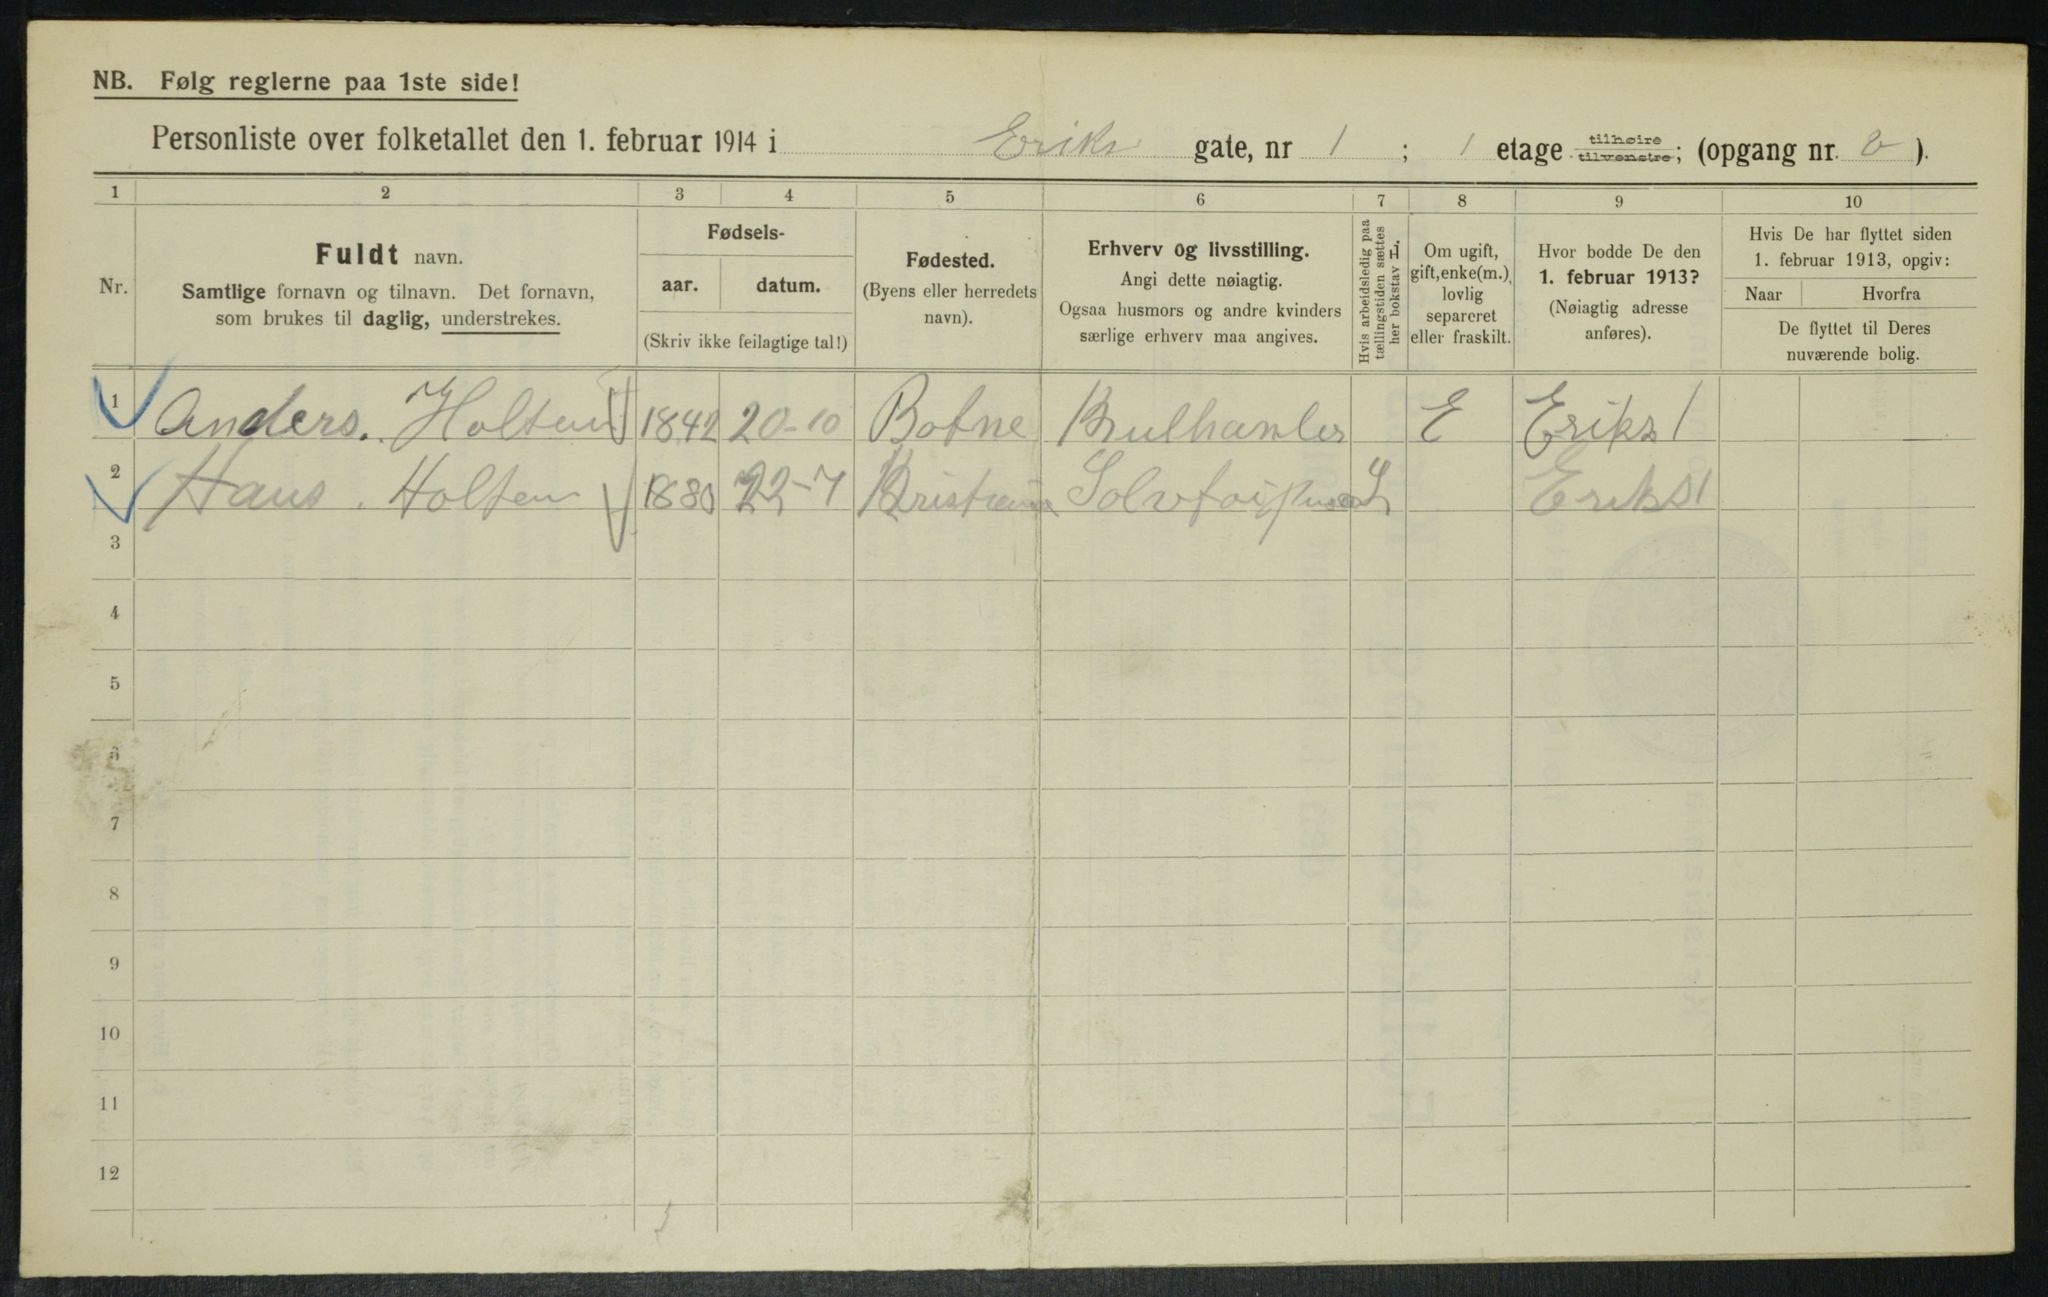 NB. Følg reglerne paa 1ste side!
Personliste over folketallet den 1. februar 1914 i Eriks gate, nr 1 ; 1 etage tilhøire tilvenstre; (opgang nr. ).
1 2 3 4 5 6 7 8 9 10
Nr.
Fuldt navn.
Samtlige fornavn og tilnavn. Det fornavn,
som brukes til daglig, understrekes.
Fødsels-
aar. datum.
(Skriv ikke feilagtige tal!)
Fødested.
(Byens eller herredets
navn).
Erhverv og livsstilling.
Angi dette nøiagtig.
Ogsaa husmors og andre kvinders
særlige erhverv maa angives.
Hvis arbeidsledig paa
tællingstiden sættes
her bokstav L.
Om ugift,
gift, enke(m.),
lovlig
separeret
eller fraskilt.
Hvor bodde De den
1. februar 1913?
(Nøiagtig adresse
anføres).
Hvis De har flyttet siden
1. februar 1913, opgiv:
Naar Hvorfra
De flyttet til Deres
nuværende bolig.
1 Anders. Holten 1842 20-10 Botne Kulhanler E Eriks 1
2 Hans. Holten 1880 22-7 Kristiania L Eriks 1
3
4
5
6
7
8
9
10
11
12